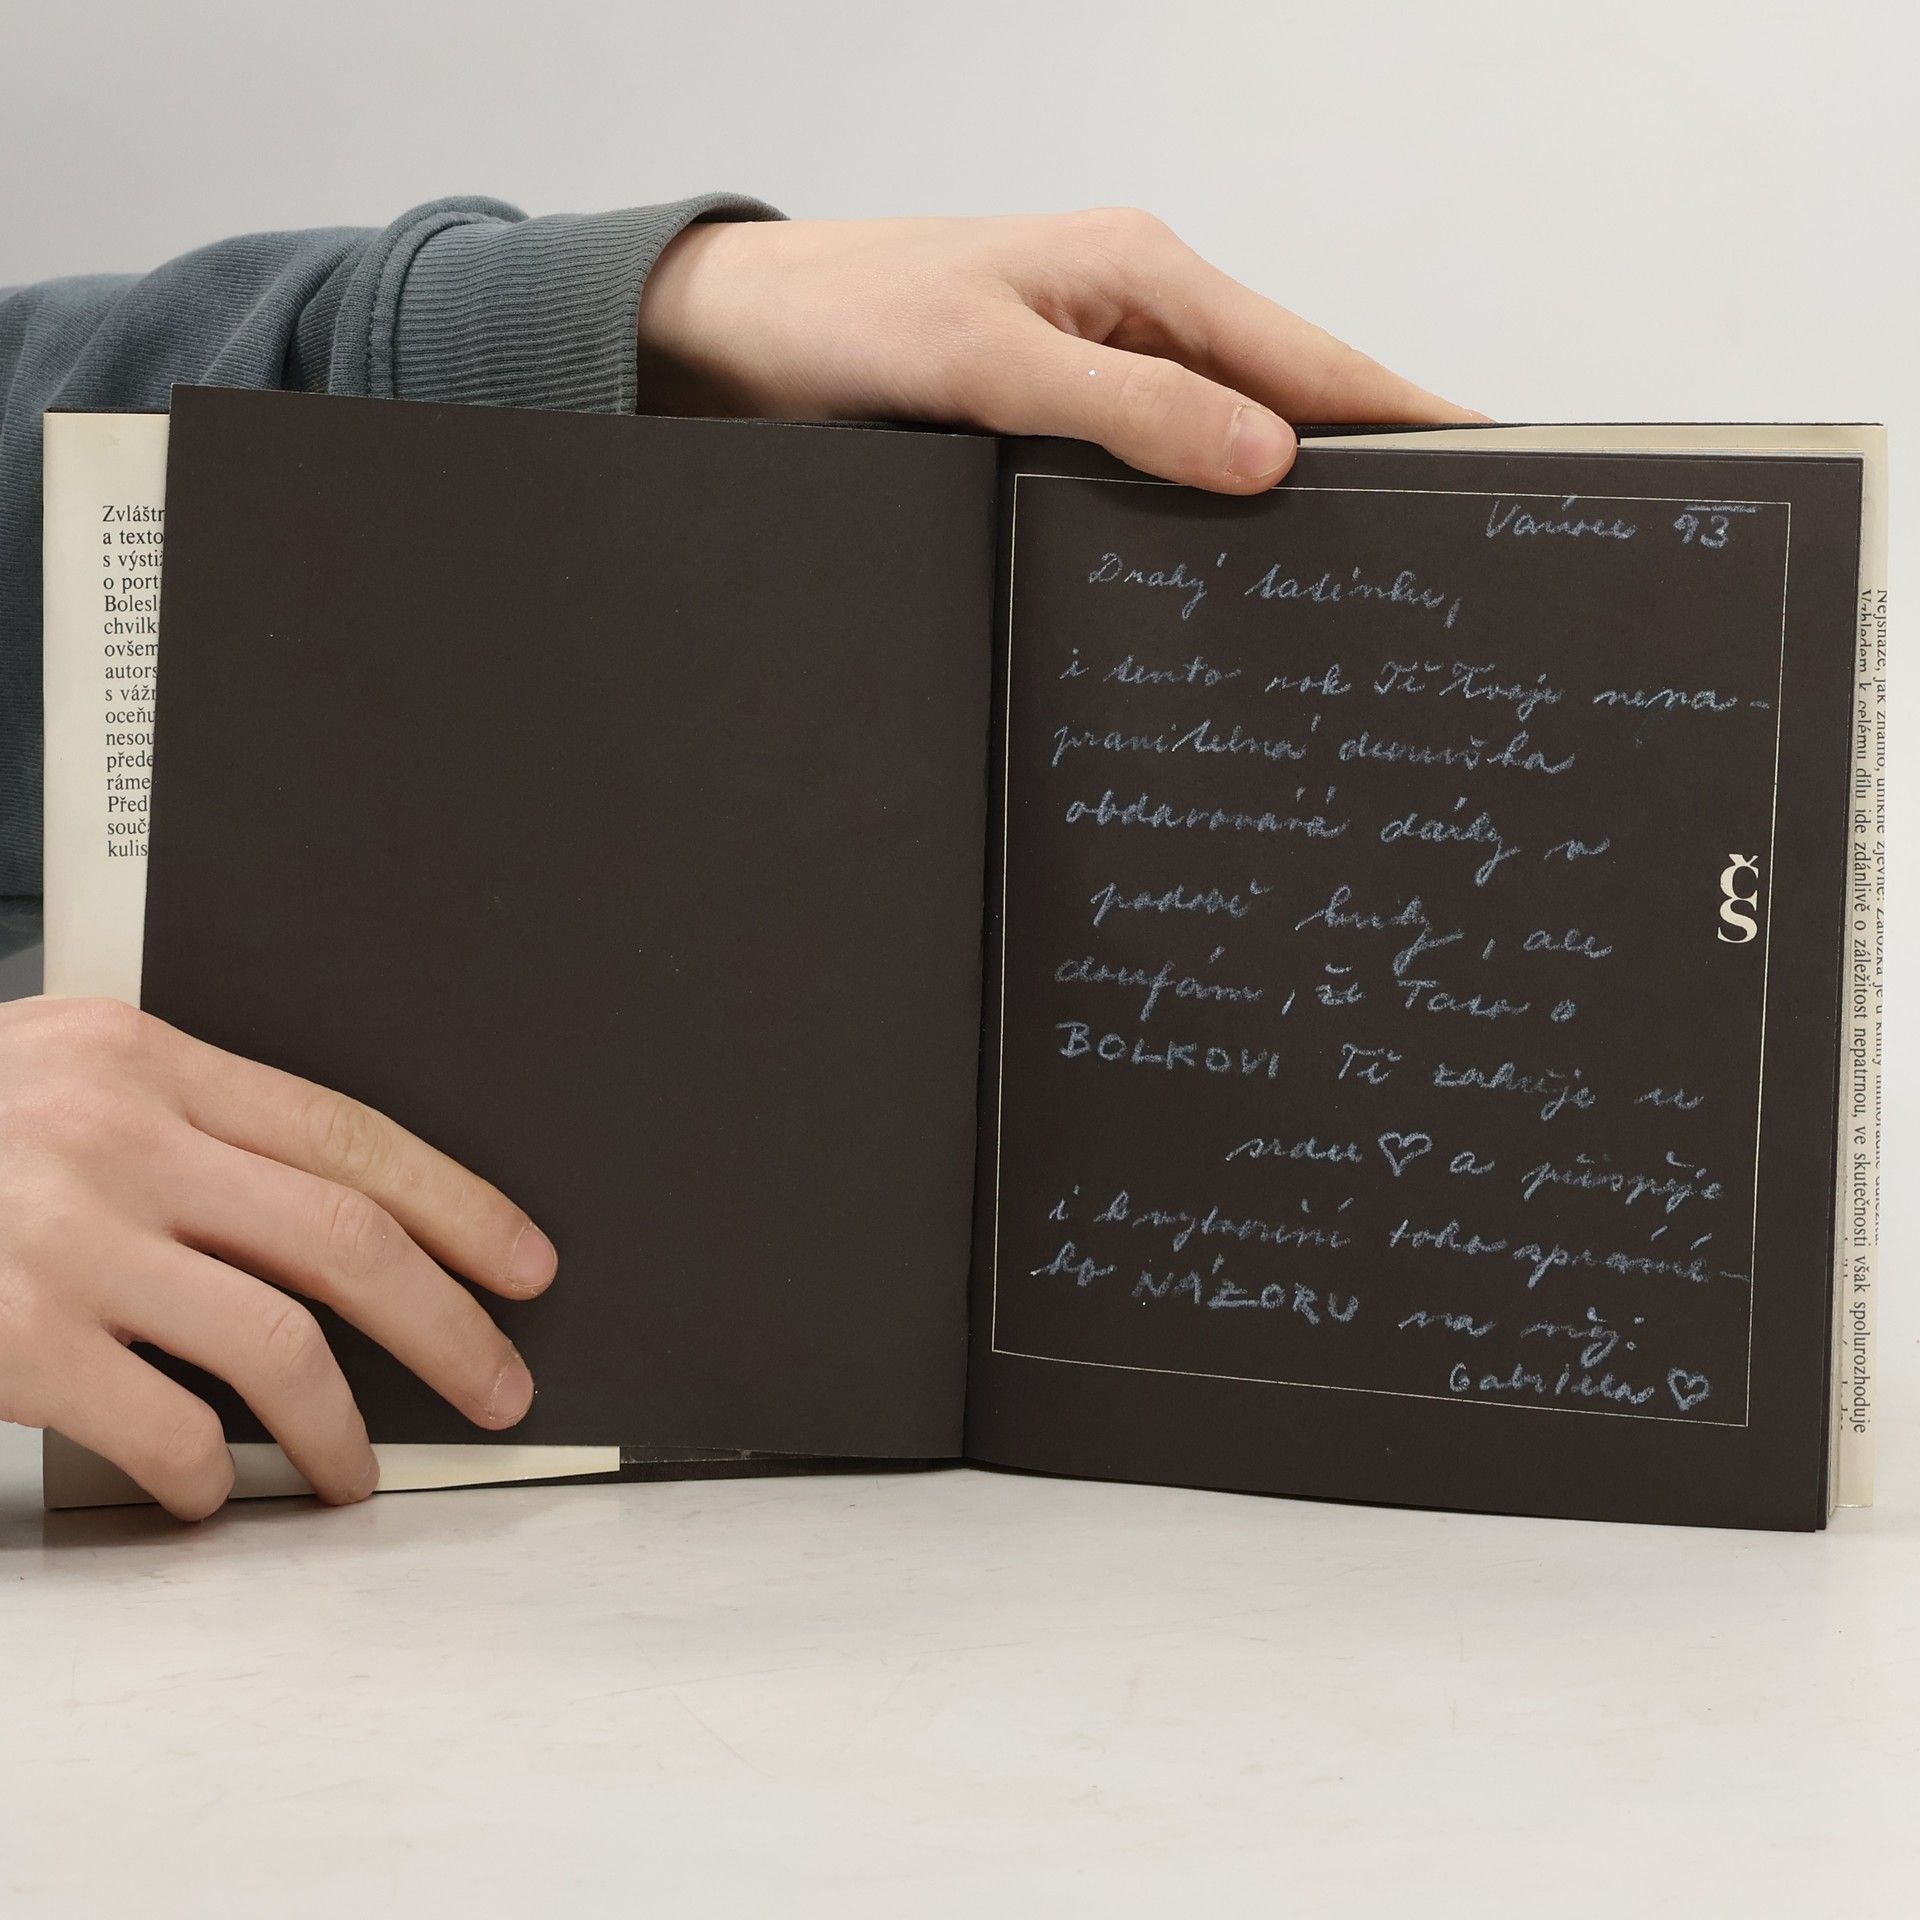 Zvláštn
a texto
s výstiž
o port
Bolesl
chvilk
ovšem
autors
s vážn
oceňu
nesou
přede
ráme
Před
souč
kulis
93
Drahý tatínku,
i tento rok Tě Tvoje nena-
pravitelná dceruška
obdarovává dárky v
podobě knihy, ale
doufám, že Tato o
BOLKOVI Tě zahřeje u
srdce ♡ a přispěje
i k vytvoření toho správné-
ho NÁZORU na něj:
Gabriela ♡
ČS
Nejsnáze, jak známo, unikne zjevné.
Vzhledem k celému dílu jde zdánlivě o záležitost nepatrnou, ve skutečnosti však spolurozhoduje